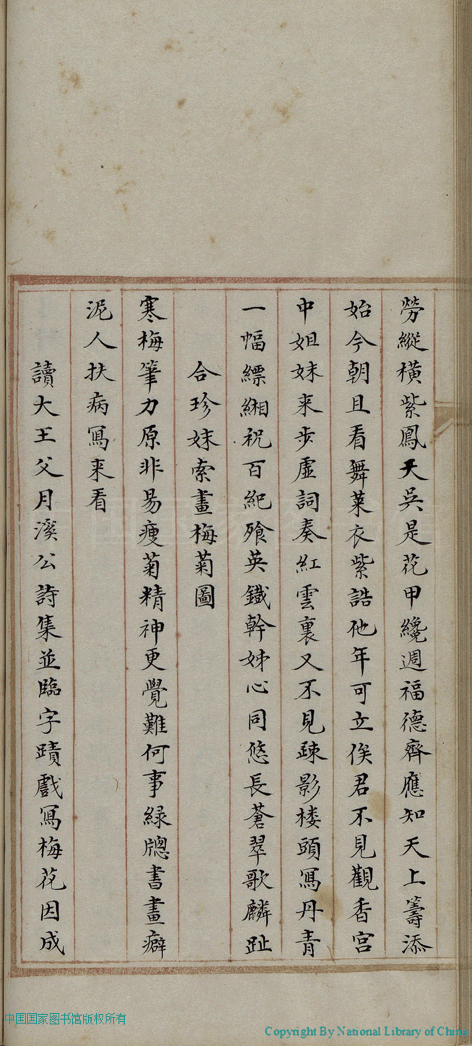 勞縱橫紫鳳天吳是花甲纔週福德齊應知天上籌添
始今朝且看舞萊衣紫誥他年可立俟君不見觀香宮
中姐妹来步虛詞奏紅雲裏又不見疎影楼頭寫丹青
一幅縹緗祝百紀飱英鐵幹姊心同悠長蒼翠歌麟趾
合珍妹索畫梅菊圖
寒梅筆力原非易瘦菊精神更覺難何事緑牕書畫癖
泥人扶病寫来看
讀大王父月溪公詩集並臨字蹟戲寫梅花因成
中国国家图书馆版权所有
Copyright By National Library of China